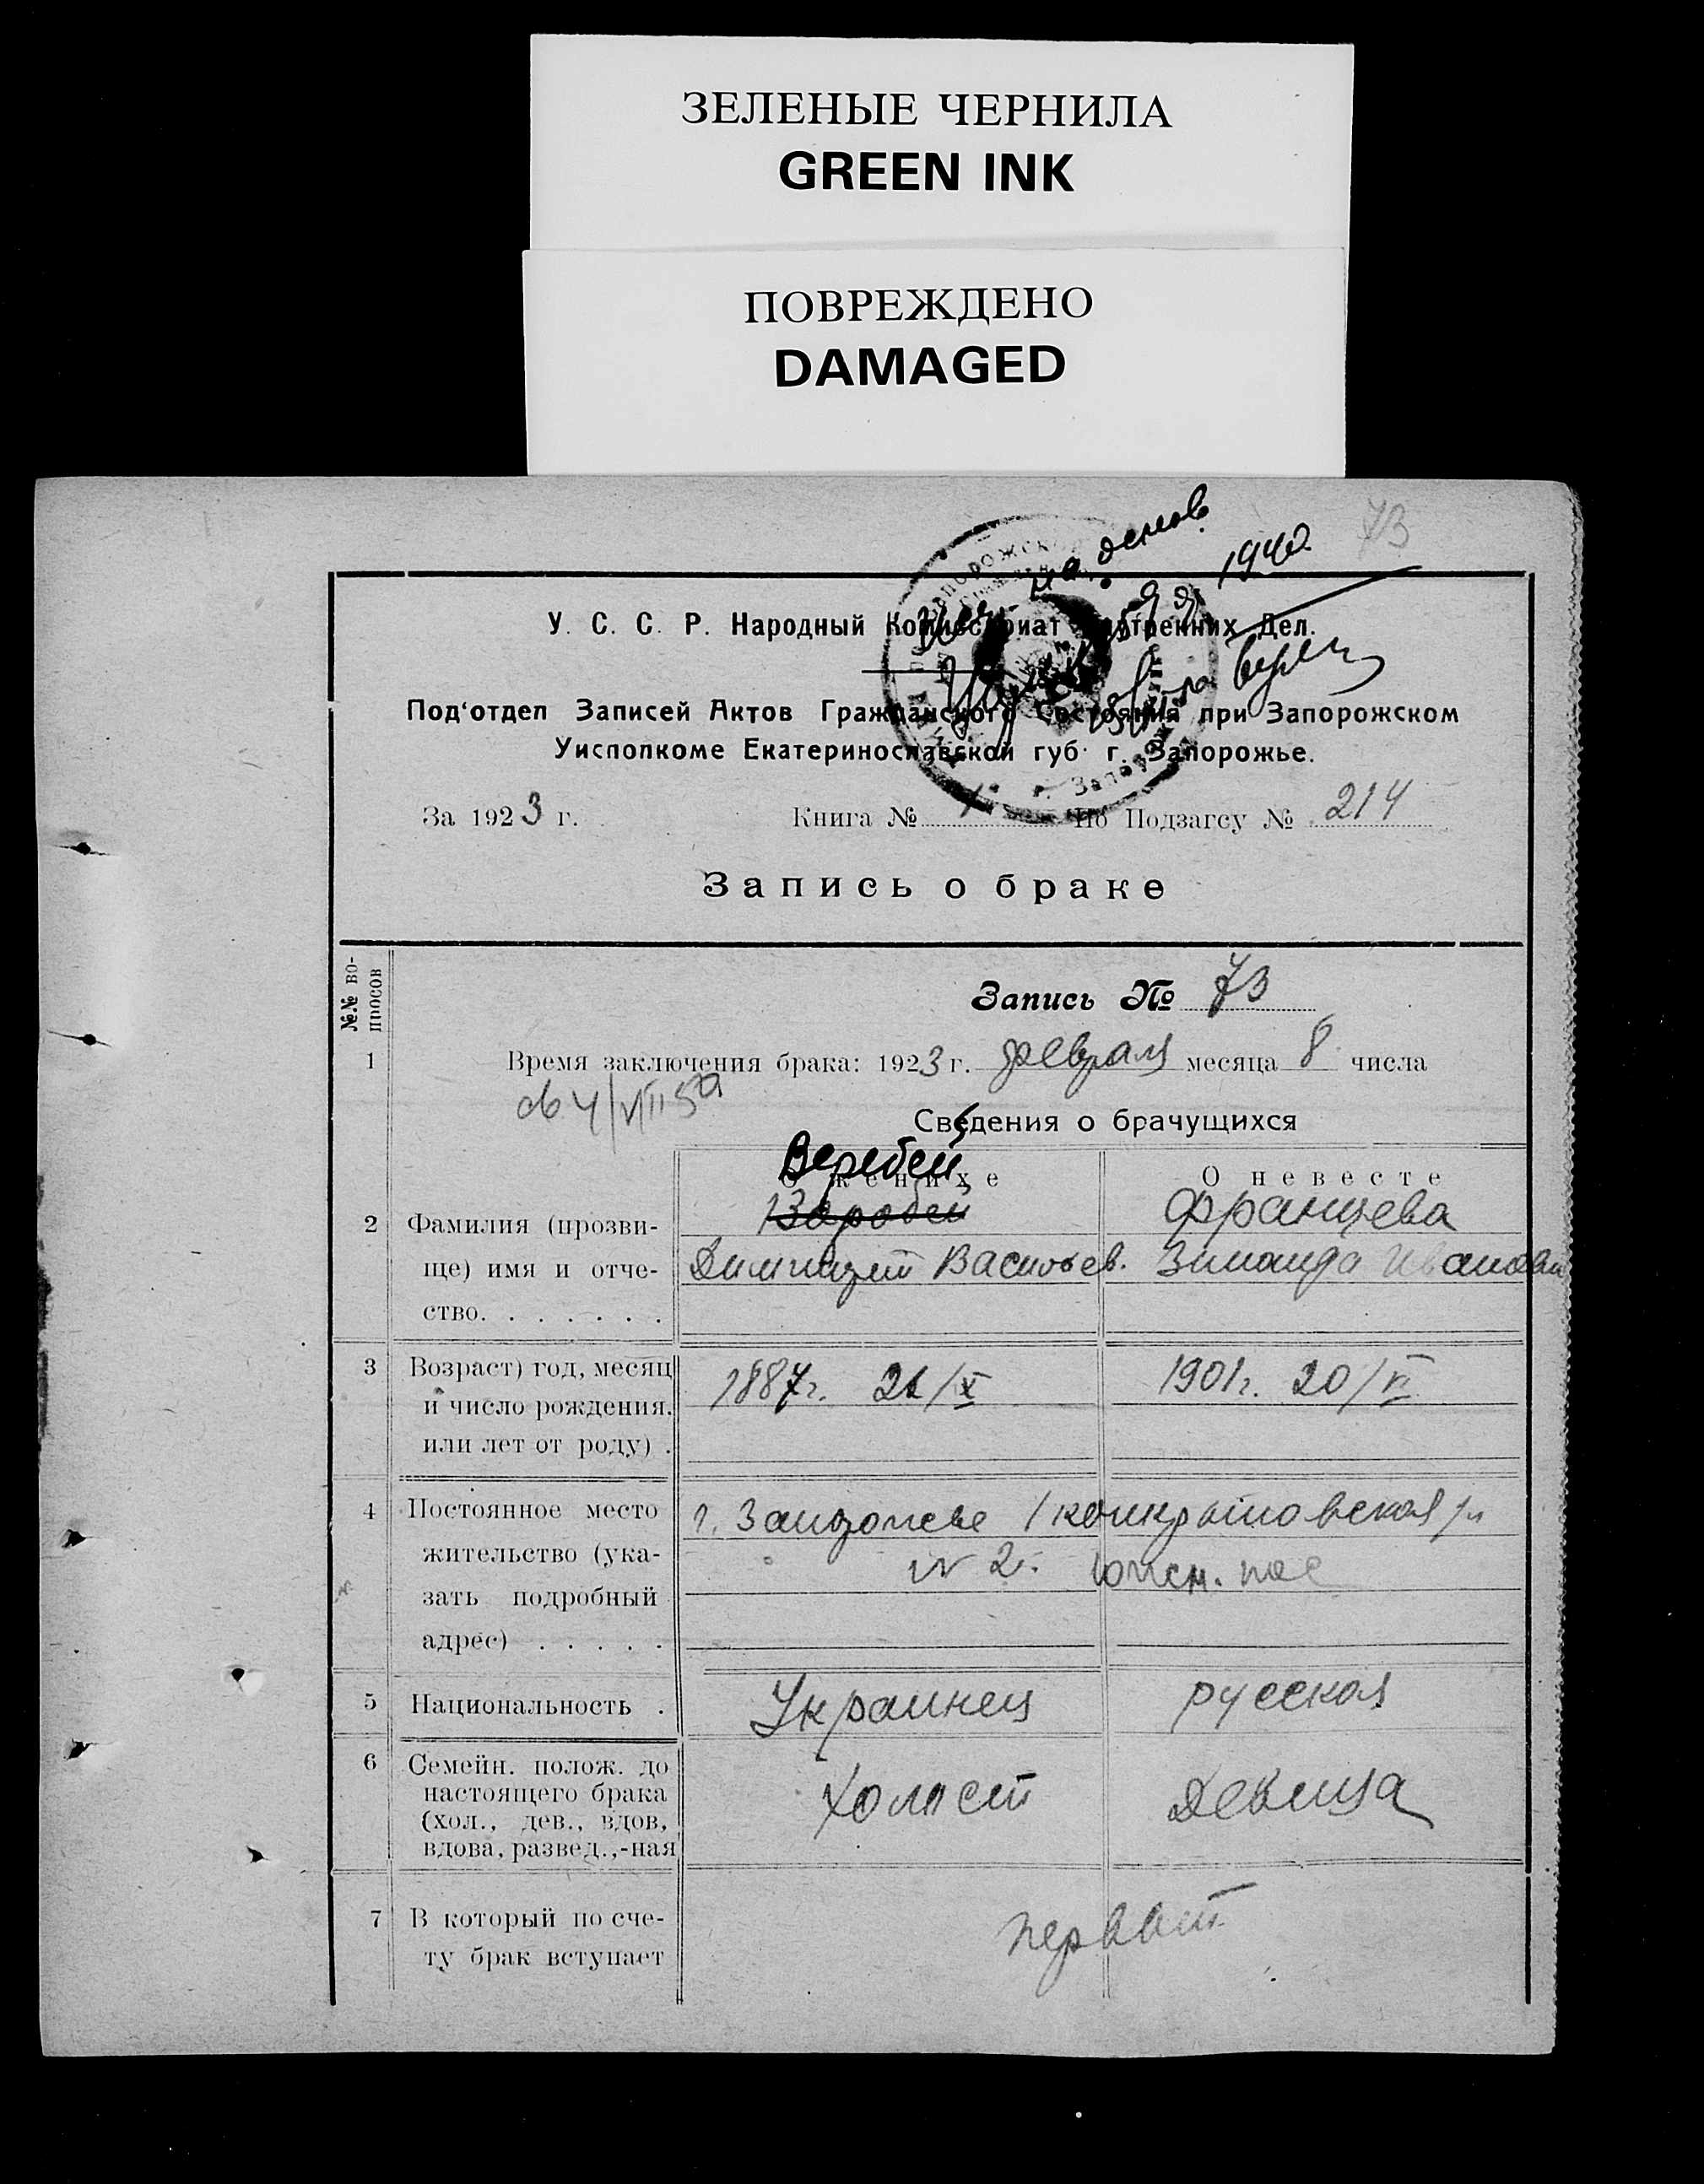 ЗЕЛЕНЫЕ ЧЕРНИЛА
GREEN INK
ПОВРЕЖДЕНО
DAMAGED
73
на основ.
1940
У. С. С. Р. Народный Комиссариат Внутренних Дел.
Под'отдел Записей Актов Гражданского Состояния при Запорожском
Уисполкоме Екатеринославской губ. г. Запорожье.
За 1923 г. Книга № 1 По Подзагсу № 214
Запись о браке
№№ во-
просов
Запись № 73
1 Время заключения брака: 1923 г. февраля месяца 8 числа
Сведения о брачущихся
Веребей
О женихе О невесте
Воробей Францева
2 Фамилия (прозви-
ще) имя и отче- Димитрий Васильев. Зинаида Иванови
ство. . . . . . .
3 Возраст) год, месяц 1887г. 21/X 1901г. 20/VI
и число рождения.
или лет от роду) .
4 Постоянное место г. Запорожье
жительство (ука- № 2. южн. пос
зать подробный
адрес) . . . . .
5 Национальность . Украинец русская
6 Семейн. полож. до
настоящего брака Холост Девица
(хол., дев., вдов,
вдова, развед.,-ная
7 В который по сче- первый
ту брак вступает